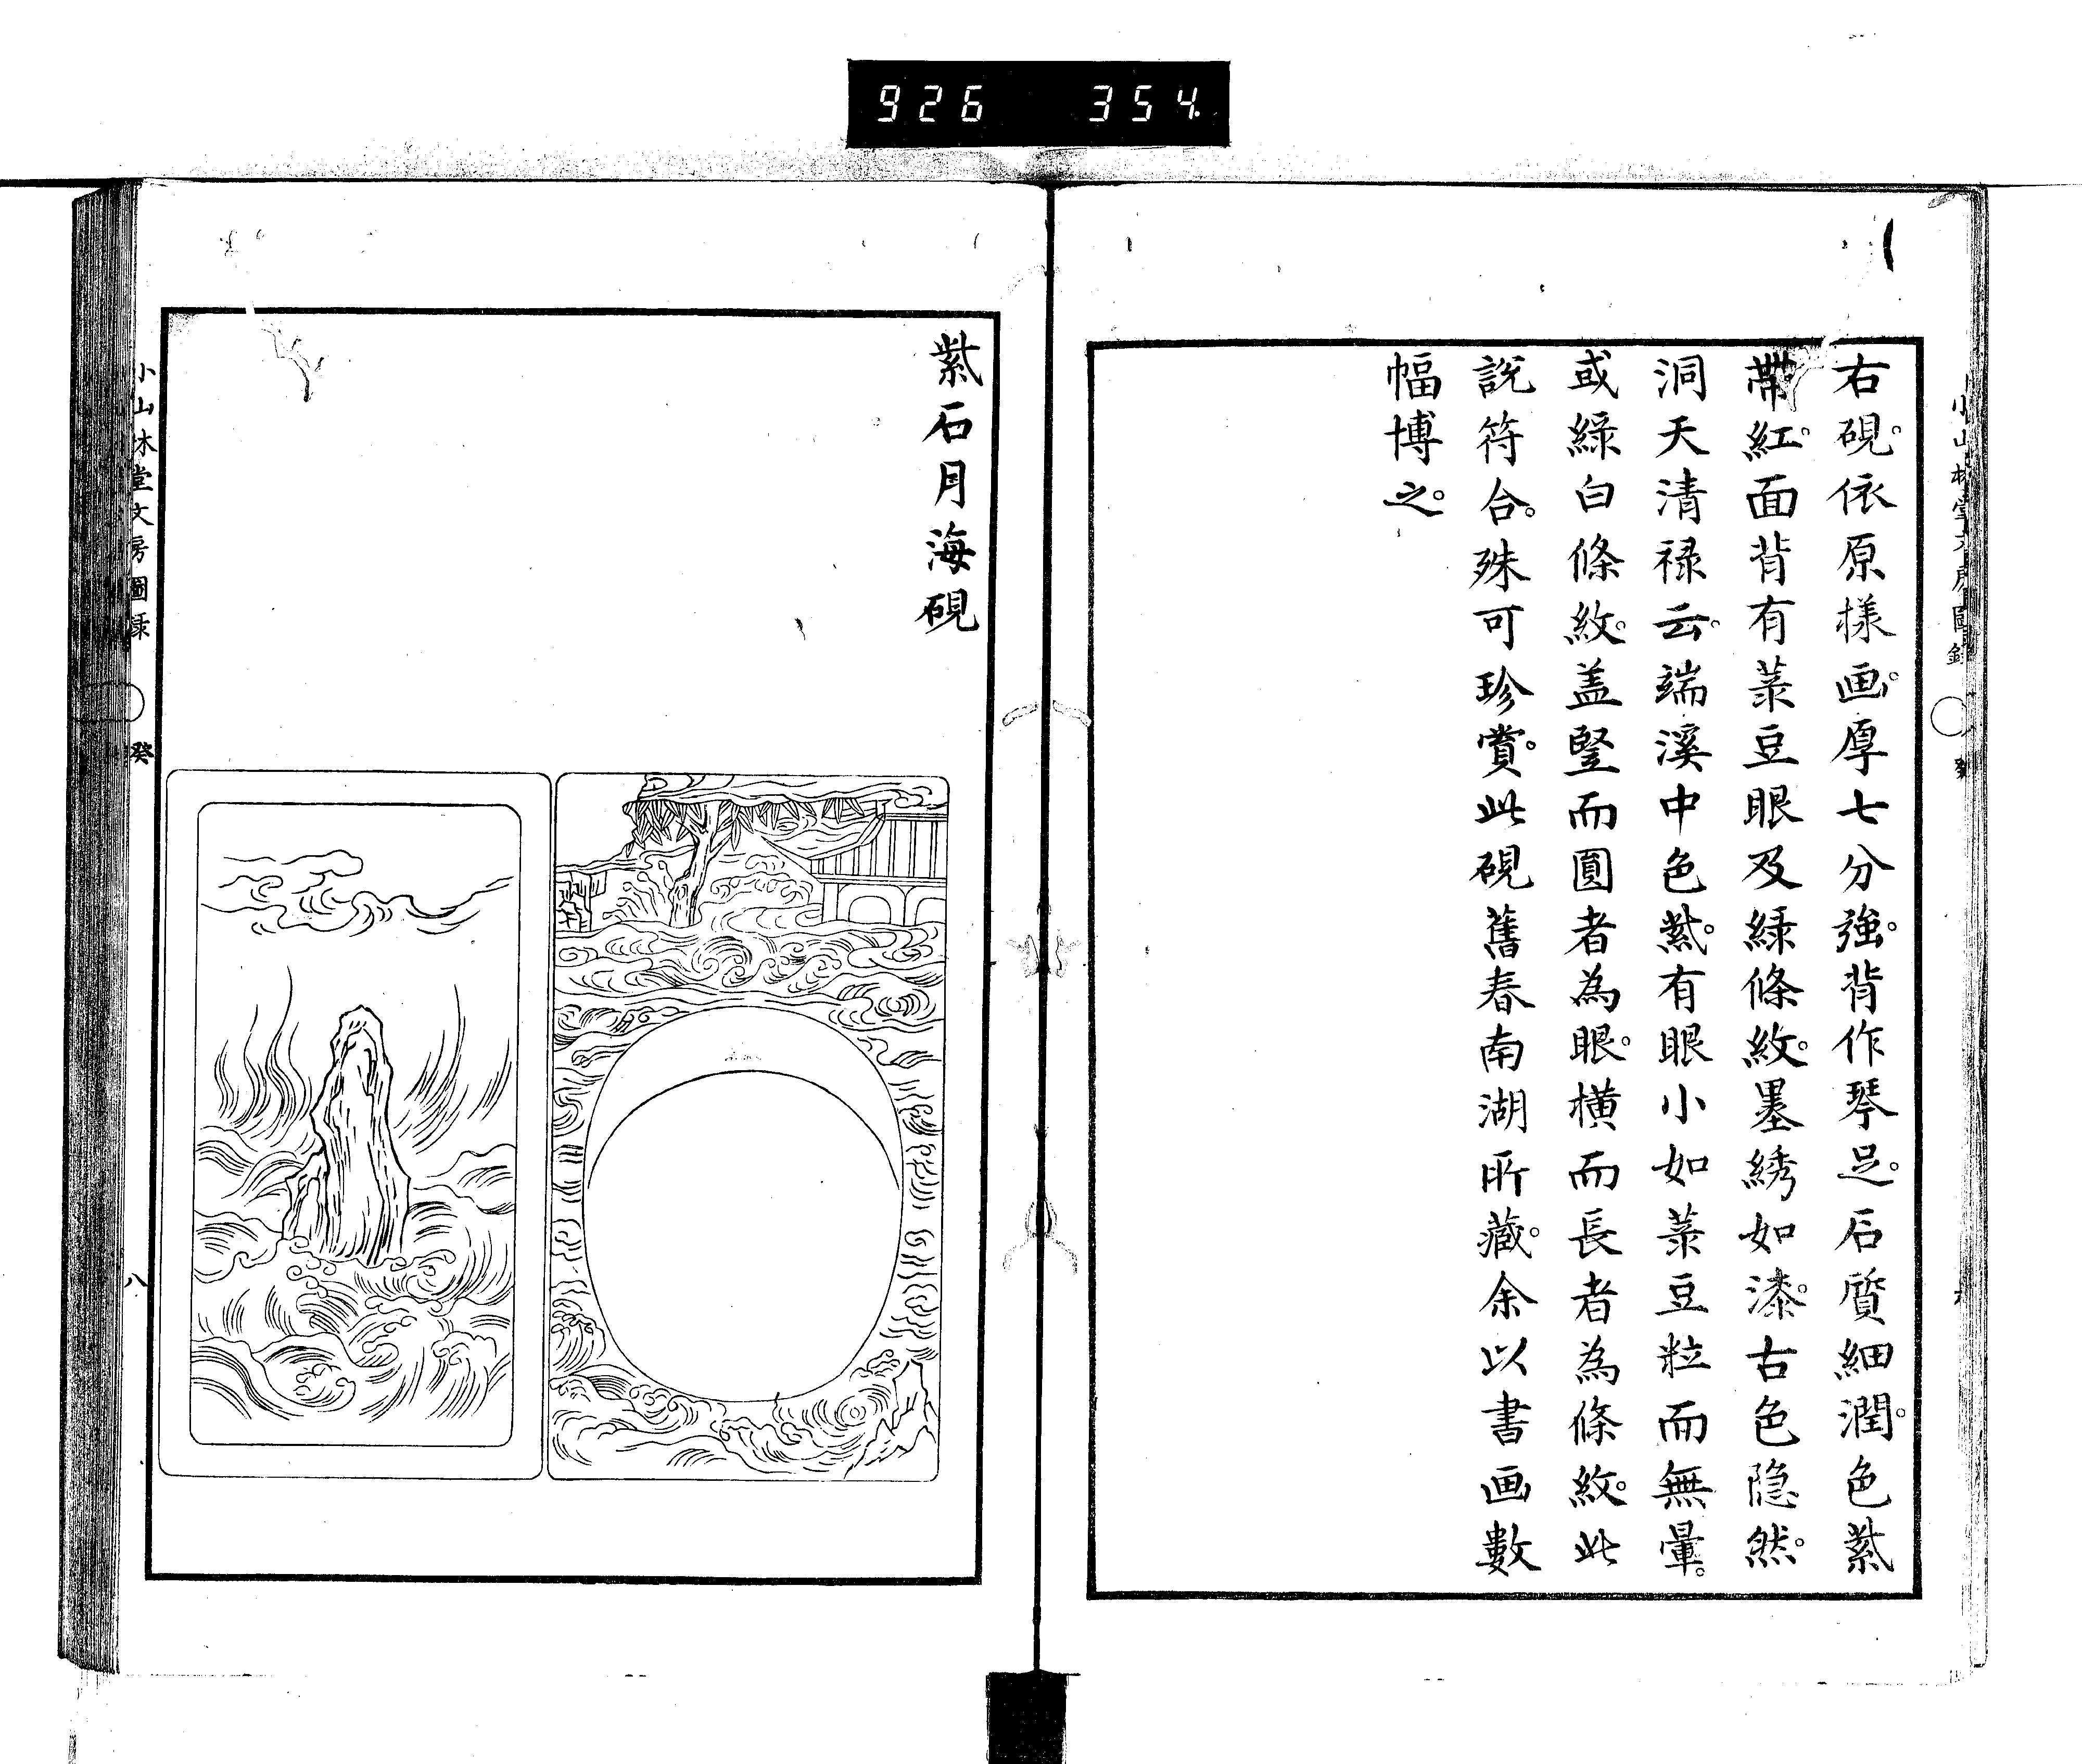 926 354.
右硯。依原様画。厚七分強。背作琴足。石質細潤。色紫
帶紅。面背有菉豆眼及緑條紋。墨綉如漆。古色隠然。
洞天清禄云。端溪中色紫。有眼小如菉豆粒而無暈。
或緑白條紋。盖竪而圓者為眼。横而長者為條紋。此
説符合。殊可珍賞。此硯舊春南湖所藏。余以書画數
幅博之。
紫石月海硯
小山林堂文房圖録 癸
八